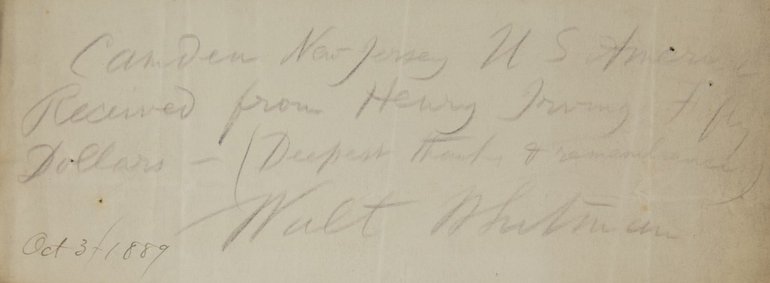 Camden New Jersey U S America
Received from Henry Irving Fifty
Dollars — (Deepest thanks & remembrance)
Walt Whitman
Oct 3 / 1889